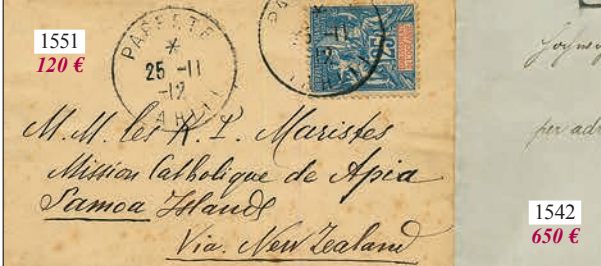 1551
120 €
PAPEETE
*
25 -11
-12
TAHITI
25
M. M. les R. P. Maristes
Mission Catholique de Apia
Samoa Islands
Via. New Zealand
per
1542
650 €